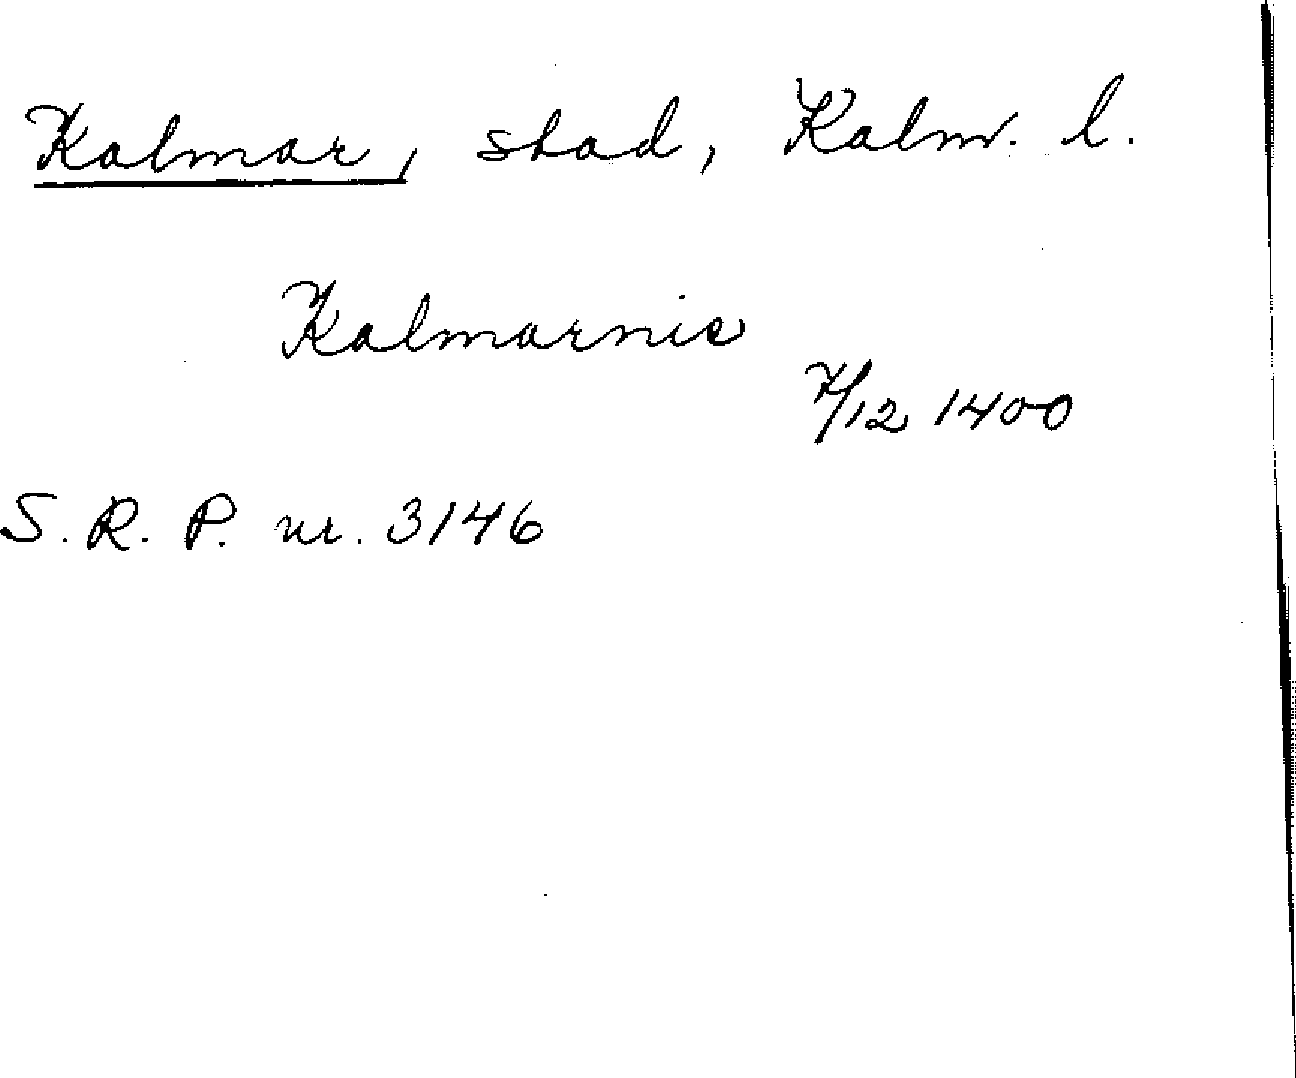 Kalmar, stad, Kalm. l.
Kalmarnie
7/12 1400
S. R. P. nr. 3146